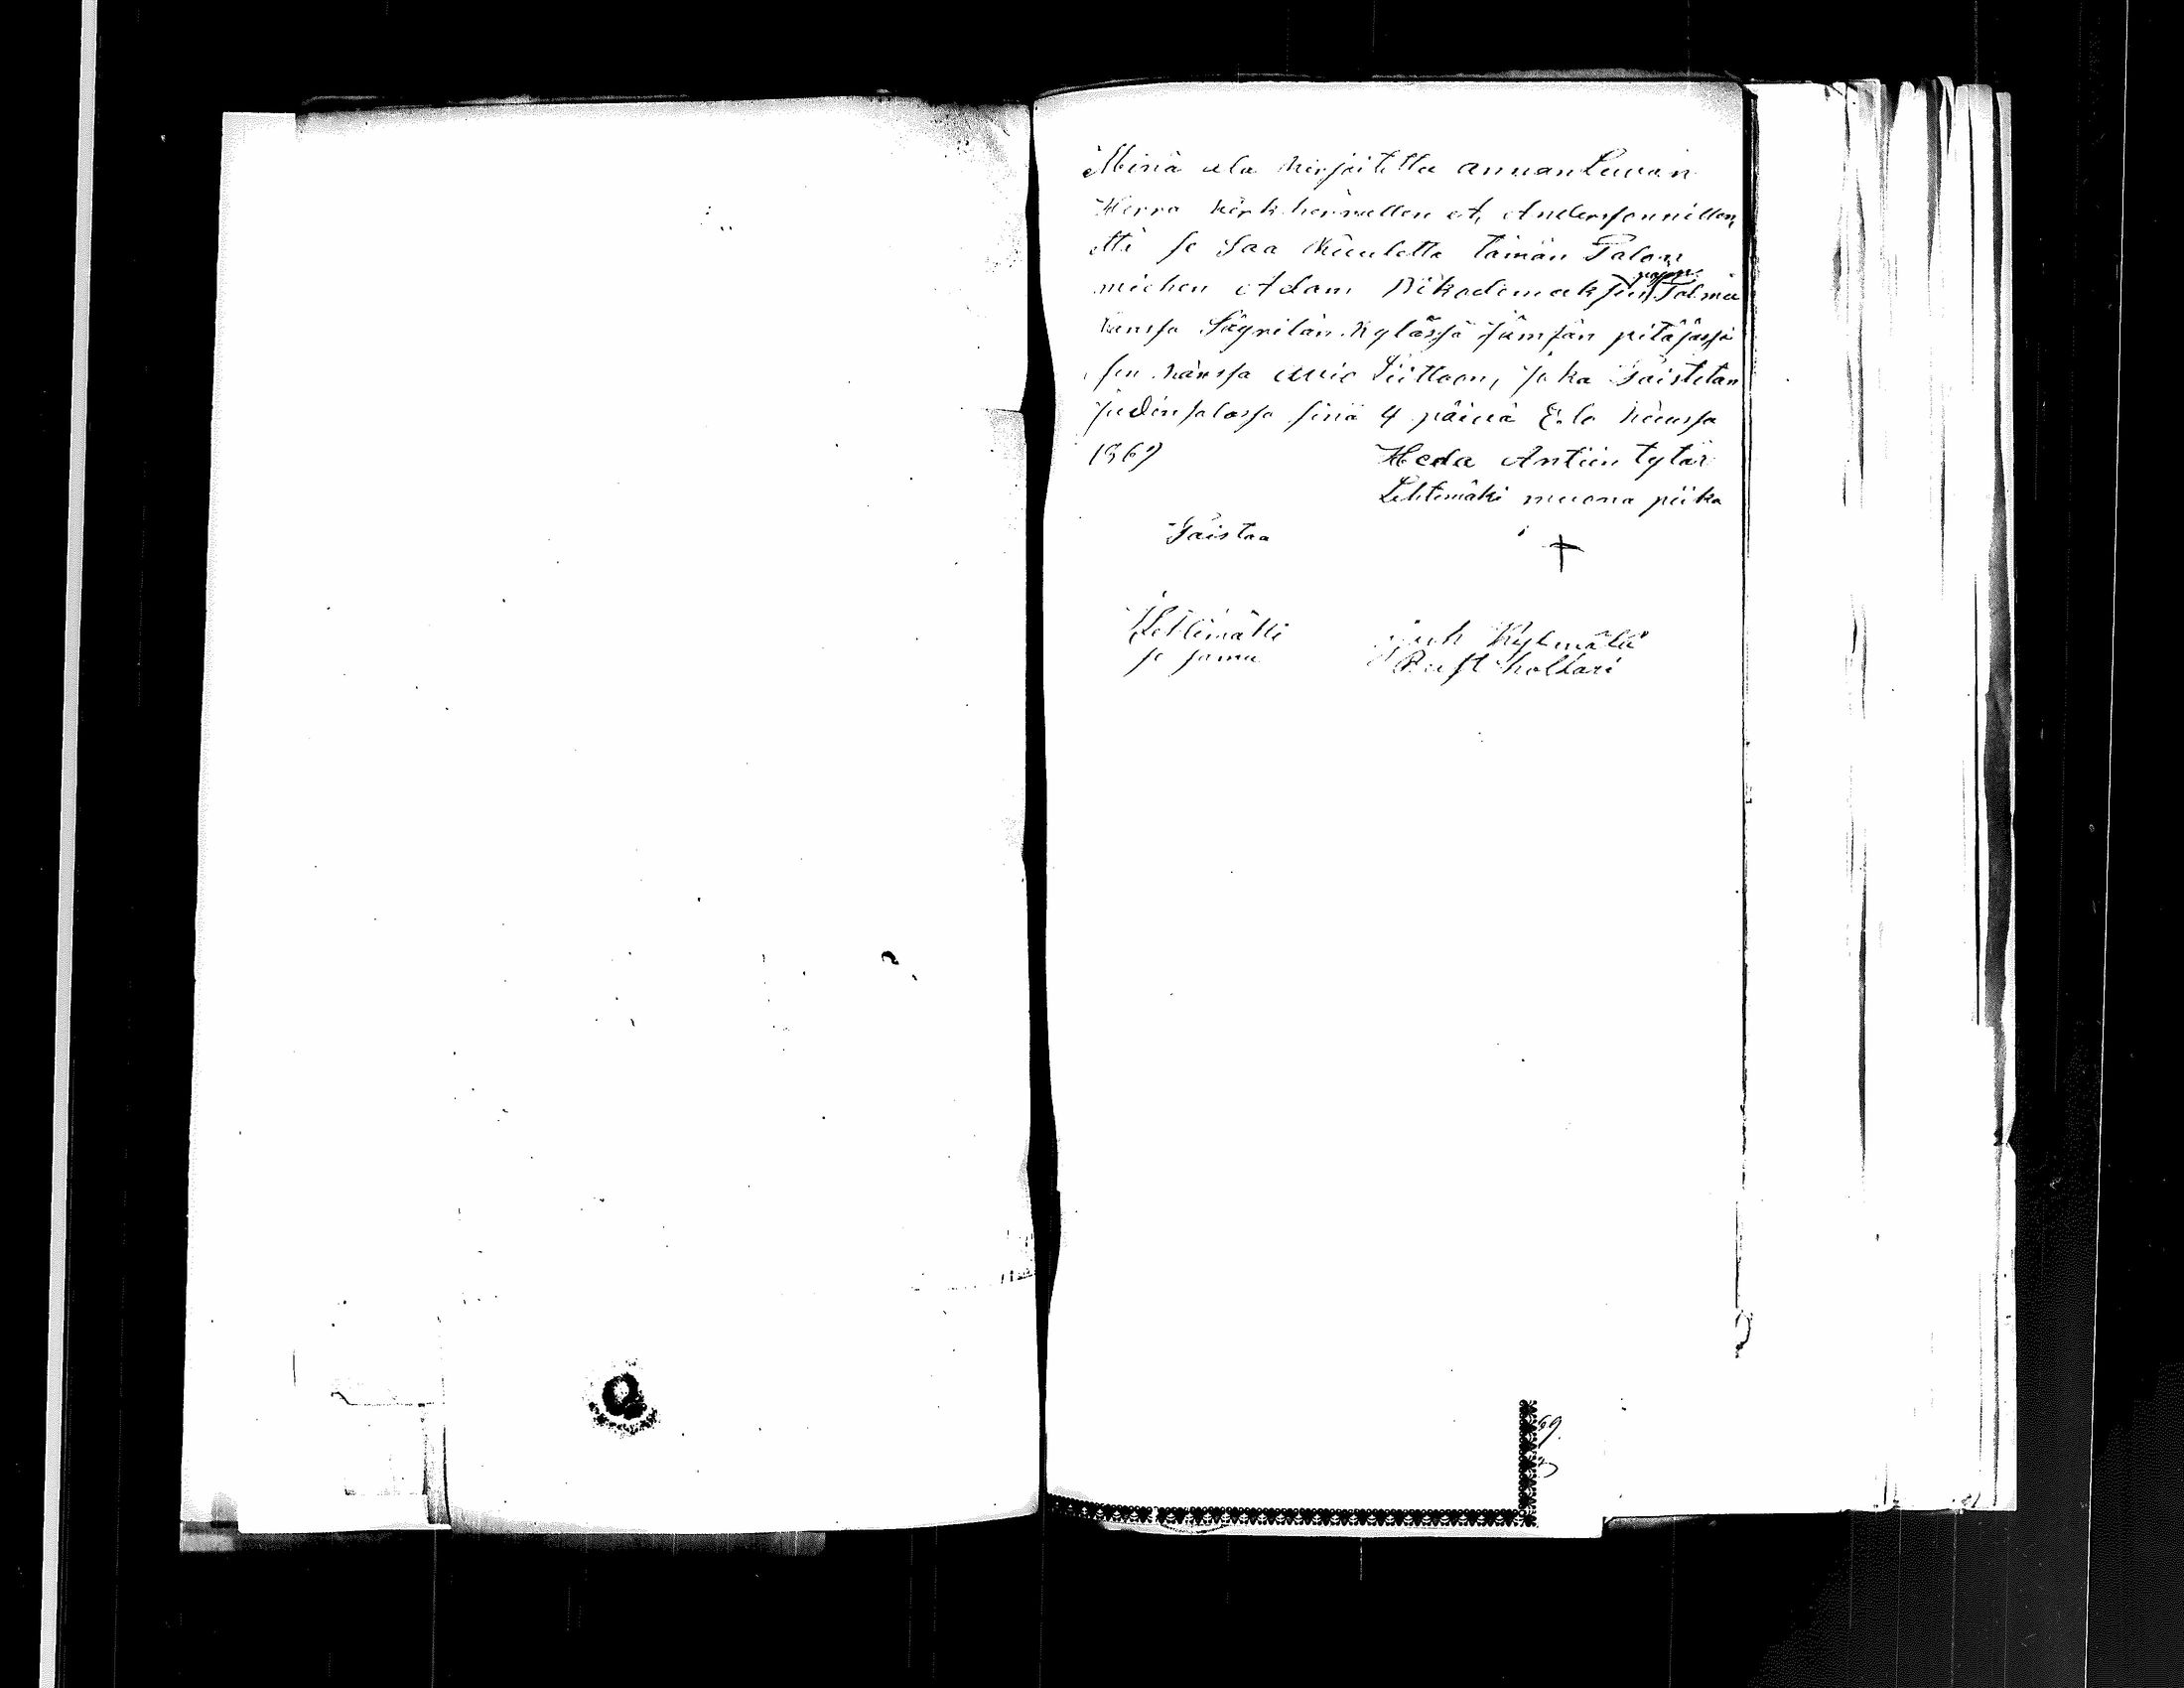 Minä ala kirjoitettu annan Luwan
Herra kirkkherrallen A, Anderssonnillen,
että se Saa kuulutta tämän Talon
miehen Adam Nikodemuksen pojan Talma
kanssa Säyrilän kylässä Jämsän pitäjässä
sen kanssa awio Liittoon, joka Taistetan
Judinsalossa sinä 4 päiwä Elo kuussa
1869
Heda Antiin tytär
Lehtimäki muona piika
Taistaa
Lehtimäki
ja sama
juh Kylmälä
Rust hollari
69